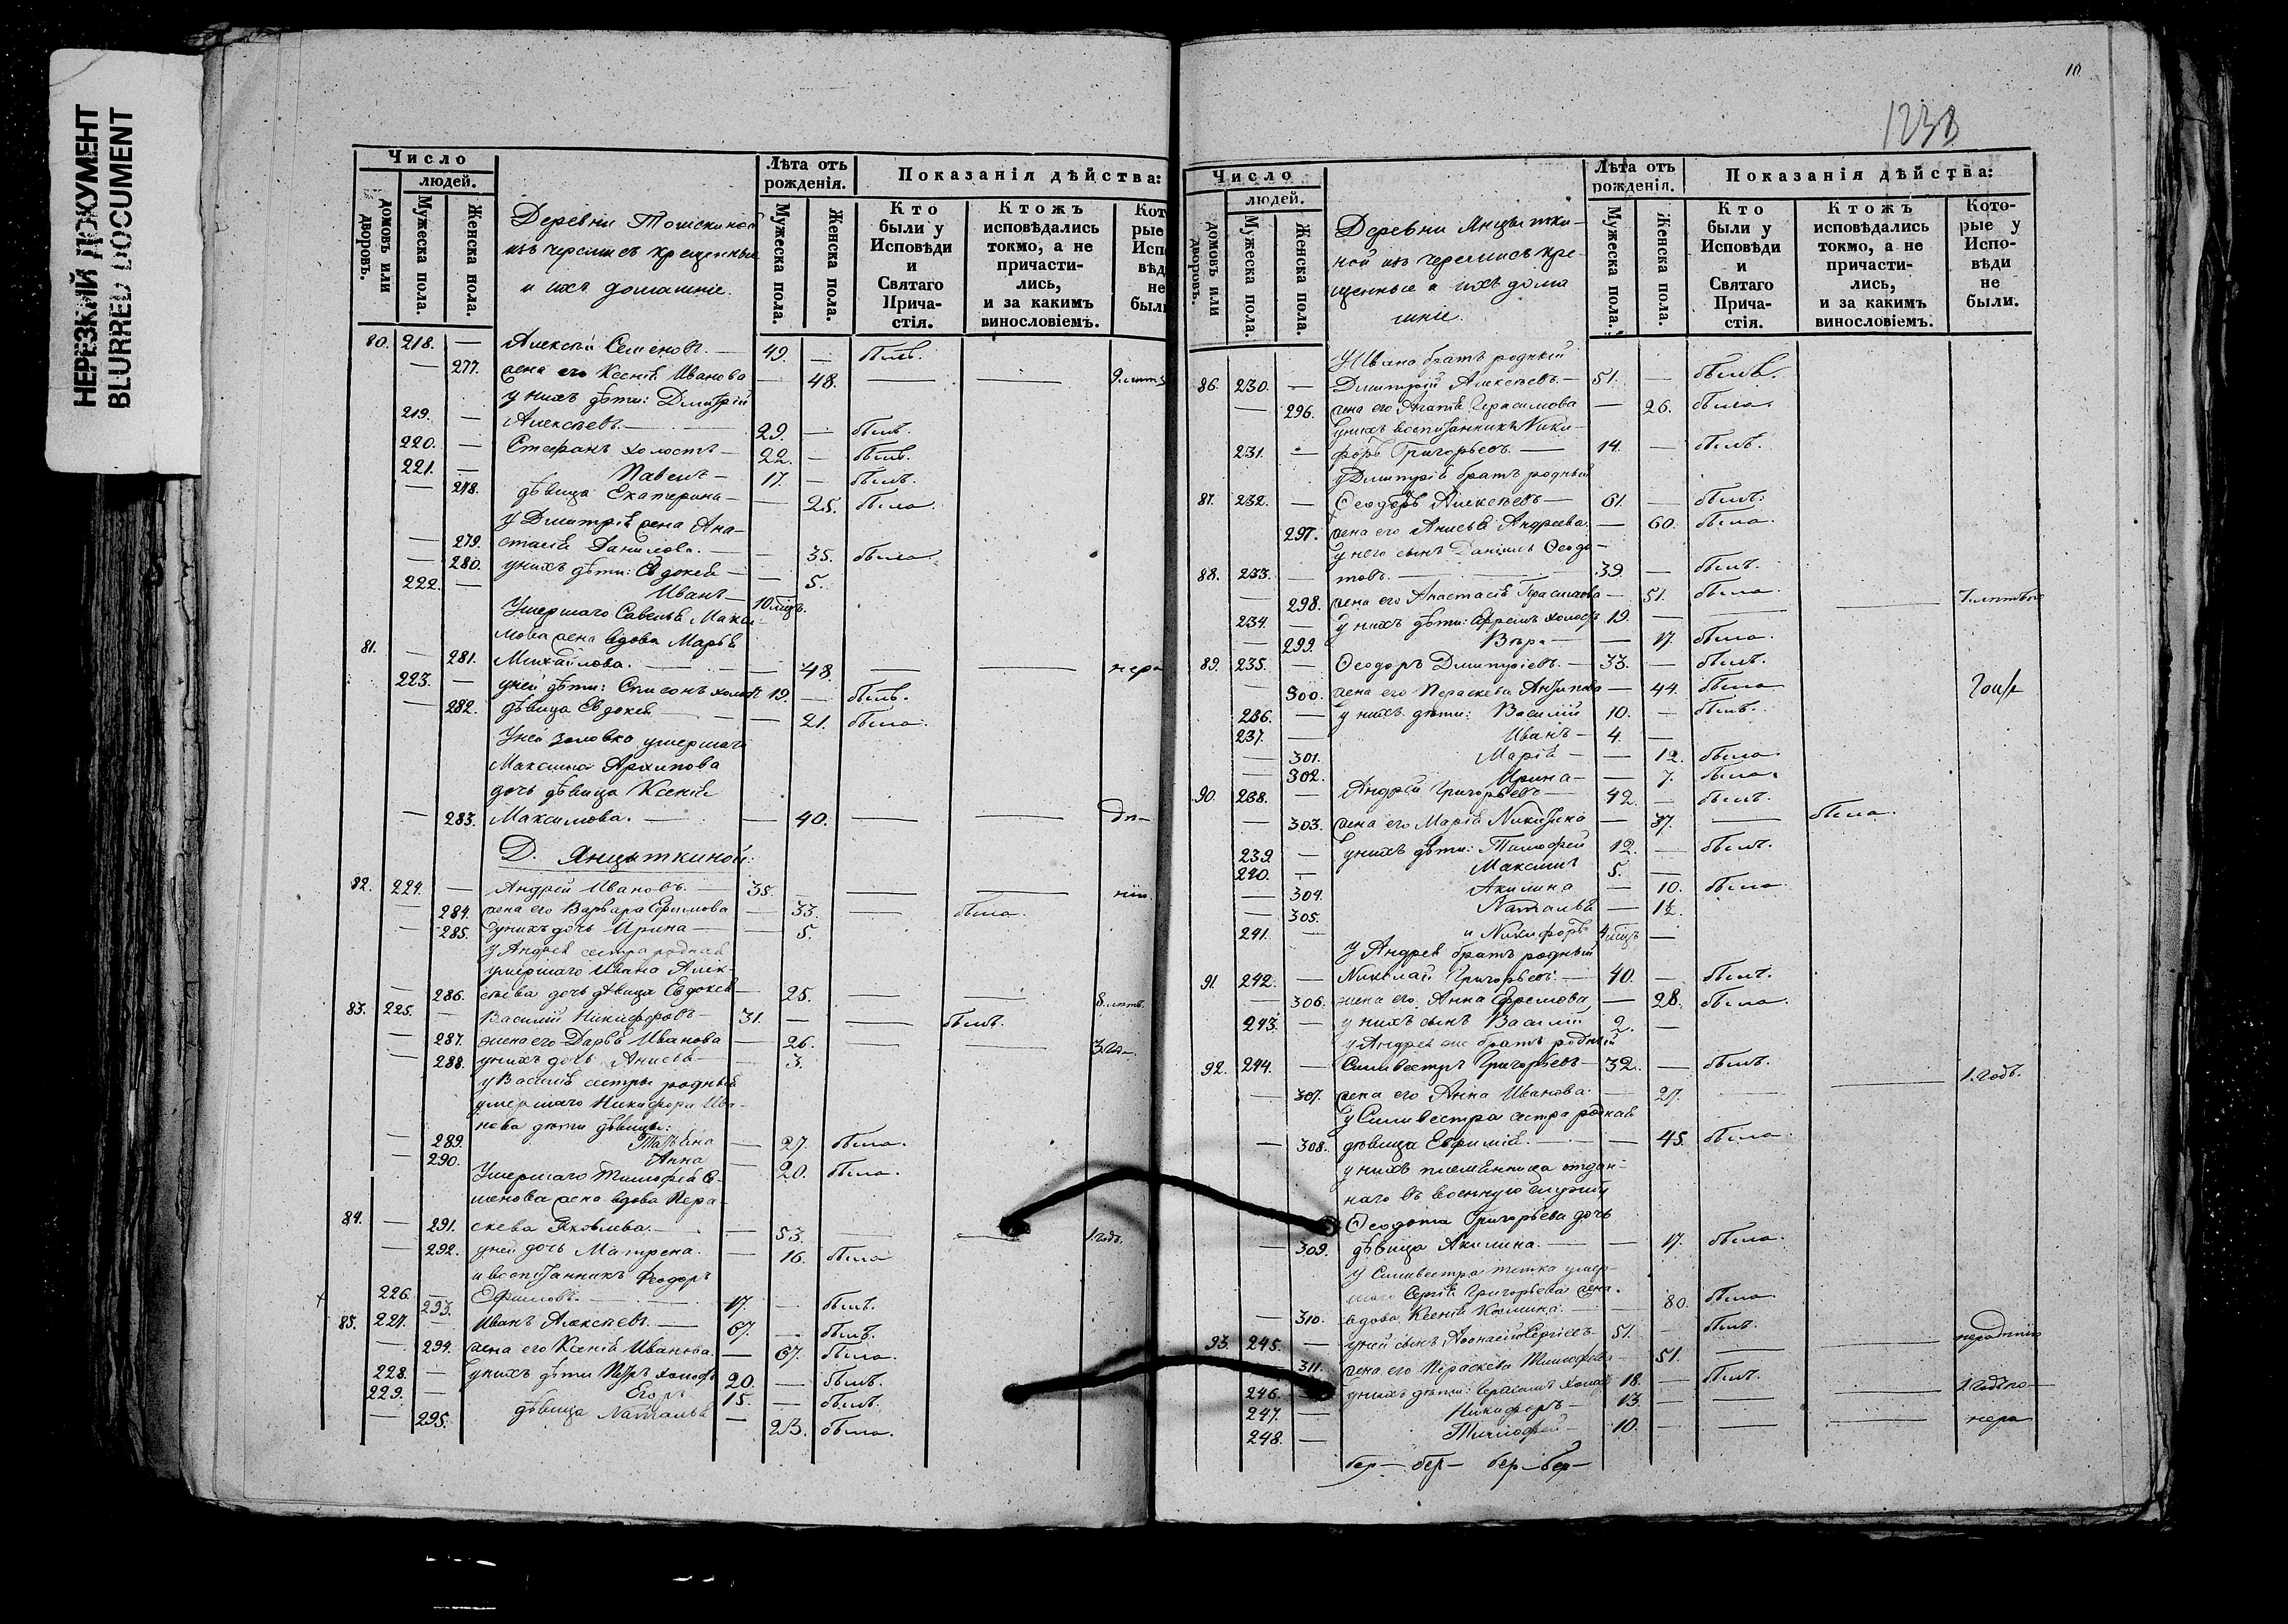 НЕРЕЗКИЙ ДОКУМЕНТ
BLURRED DOCUMENT
Число
людей.
домовъ или дворовъ.
Мужеска пола.
Женска пола.
Деревни
изъ черемисъ крещенные
и ихъ домашніе.
Лѣта отъ рожденія.
Мужеска пола.
Женска пола.
Показанія дѣйства:
Кто были у Исповѣди и Святаго Причастія.
Ктожъ исповѣдались токмо, а не причастились, и за какимъ винословіемъ.
80. 218. — Алексѣй Семеновъ. — 49. — былъ.
— 277. жена его Ксенія Иванова — 48. — —
у нихъ дѣти: Димитрій
219. — Алексѣевъ. — 29. — былъ.
220. — Стефанъ холостъ — 22. — былъ.
221. — Павелъ — 17. — былъ.
— 278. дѣвица Екатерина — — 25. была
у Димитрія жена Ана-
— 279. стасія Данилова. — — 35. была
— 280. у нихъ дѣти: Евдокія — — 5.
222. — Иванъ — 10 мѣц.
Умершаго Савелья Макси-
мова жена вдова Марья
81. — 281. Михайлова. — — 48. — —
223. — у ней дѣти: Симеонъ холостъ 19. — былъ.
— 282. дѣвица Евдокія — — 21. была.
У ней золовка умершаго
Максима Архипова
дочь дѣвица Ксенія
— 283. Максимова. — — 40. — —
Д. Янцыткиной:
82. 224. — Андрей Ивановъ. — 35. — — —
— 284. жена его Варвара Ефимова — 33. — была.
— 285. у нихъ дочь Ирина — — 5.
У Андрея сестра родная
умершаго Ивана Алек-
— 286. сѣева дочь дѣвица Евдокія — 25. — —
83. 225. — Василій Никифоровъ — 31. — — былъ.
— 287. жена его Дарья Иванова — 26. — —
— 288. у нихъ дочь Анисья — — 3.
у Василія сестры родныя
умершаго Никифора Ива-
нова дѣти дѣвицы:
— 289 Татьяна — 27. была.
— 290. Анна — 20. была.
Умершаго Тимофея Се-
менова жена вдова Пара-
84. — 291. скева Яковлева. — — 53. — — 1. годъ.
— 292. у ней дочь Матрена. — 16. была
и воспитанникъ Феодоръ
226. — Ефимовъ. — 17. — былъ.
293.
85. 227. — Иванъ Алексѣевъ. — 67. — былъ.
— 294. жена его Ксенія Иванова. — 67. была.
228. — у нихъ дѣти Петръ холостъ 20. — былъ.
229. — Егоръ. 15. — былъ.
— 295. дѣвица Наталья — 23. была.
10
1238
Число
людей.
домовъ или дворовъ.
Мужеска пола.
Женска пола.
Деревни Янцытки-
ной изъ черемисъ кре-
щенные и ихъ дома
шніе.
Лѣта отъ рожденія.
Мужеска пола.
Женска пола.
Показанія дѣйства:
Кто были у Исповѣди и Святаго Причастія.
Ктожъ исповѣдались токмо, а не причастились, и за какимъ винословіемъ.
Которые у Исповѣди не были.
У Ивана братъ родный
86. 230. — Димитрій Алексѣевъ. — 51. — былъ.
— 296. жена его Агафія Герасимова — 26. была
у нихъ воспитанникъ Ники-
231. — форъ Григорьевъ. — 14. — былъ.
у Димитрія братъ родный
87. 232. — Феодоръ Алексѣевъ — 61. — былъ.
297. жена его Анисья Андреева. — 60. была.
у него сынъ Даніилъ Феодо-
88. 233. — товъ. — 39. — былъ.
— 298. жена его Анастасія Герасимова — 51. была. —
234. — у нихъ дѣти: Ефремъ холостъ 19. —
— 299. Вѣра — — 17. была.
89. 235. — Феодоръ Димитріевъ. — 33. — былъ.
— 300. жена его Параскева Антипова — 44. была
236. — у нихъ дѣти: Василій 10. — былъ.
237. — Иванъ — 4. —
— 301. Марія — — 12. была
— 302. Ирина — — 7. была.
90. 238. — Андрей Григорьевъ — 42. — былъ.
— 303. жена его Марія Никитина — 37. — была.
239. — у нихъ дѣти: Тимофей 12. — былъ.
240. — Максимъ 5. —
— 304. Акилина — 10. была
— 305. Наталья — 1½.
241. — и Никифоръ 4 мѣц. —
У Андрея братъ родный
91. 242. — Николай Григорьевъ. — 40. — былъ.
— 306. жена его Анна Ефремова — 28. была.
243. — у нихъ сынъ Василій 2. —
у Андрея же братъ родный
92. 244. — Сильвестръ Григорьевъ — 32. — былъ.
— 307. жена его Анна Иванова — 27. — — 1. годъ.
у Сильвестра сестра родная
— 308. дѣвица Евфимія. — — 45. была
у нихъ племянница отдан-
наго въ военную службу
Феодота Григорьева дочь
— 309. дѣвица Акилина. — — 17. была.
у Сильвестра тетка умер-
шаго Сергія Григорьева жена.
— 310. вдова Ксенія Козмина. — — 80. была
93. 245. — у ней сынъ Афонасій Сергіевъ — 51. — былъ.
311. жена его Параскева Тимофеева 51. — —
246. — у нихъ дѣти: Герасимъ холостъ 18. — былъ.
247. — Никифоръ — 13. — — —
248. — Тимофей — 10. — — —